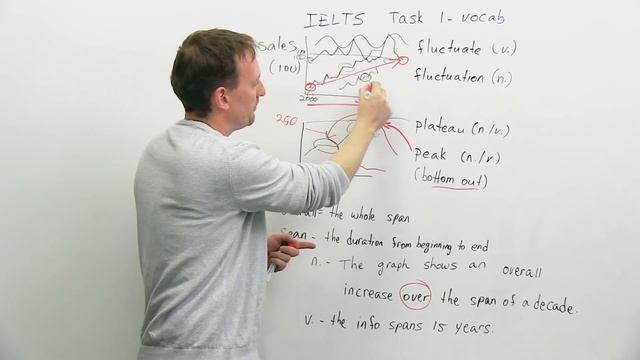 IELTS Task 1 - vocab
sales
(100)
fluctuate (v.)
fluctuation (n.)
2000
250
plateau (n./v.)
peak (n./v.)
(bottom out)
= the whole span
span - the duration from beginning to end
n. - The graph shows an overall
increase over the span of a decade.
v. - the info spans 15 years.